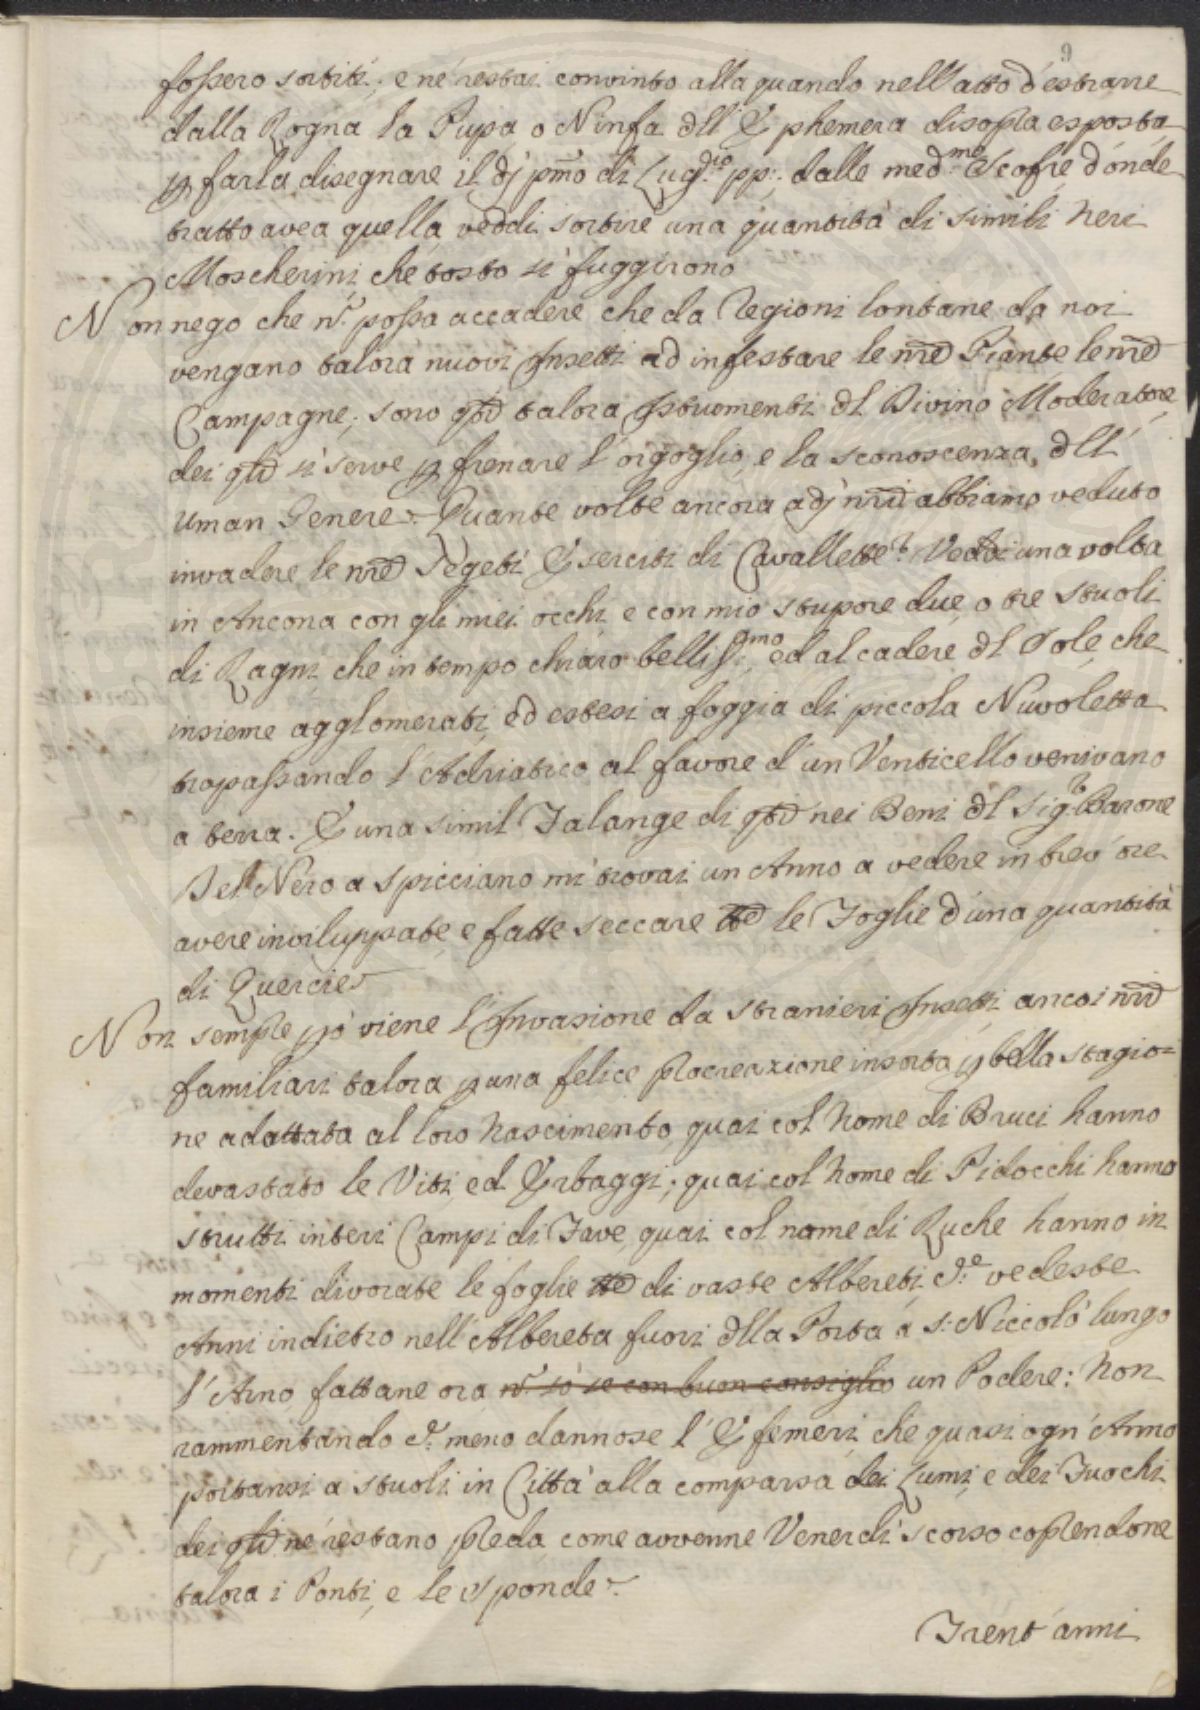 9
fossero sortiti; e né restai convinto alla quando nell'atto d'estrarre
dalla Rogna la Pupa o Ninfa dll' Ephemera disopra esposta
p farla disegnare il dj pmo di Lugio pp: dalle medme Scofie d'onde
tratto avea quella veddi sortire una quantità di simili neri
Moscherini che tosto si fuggirono
Non nego che n. possa accadere che da Regioni lontane da noi
vengano talora nuovi Insetti ad infestare le nre Piante le nre
Campagne; sono qti talora Istrumenti dl Divino Moderatore
dei qli si serve p frenare l'orgoglio e la sconoscenza dll'
uman Genere. Quante volte ancora adj nri abbiamo veduto
invadere le nre Segeti Eserciti di Cavallette? Veddi una volta
in Ancona con gli miei occhi e con mio stupore due o tre stuoli
di Ragni che in tempo chiaro bellissimo ed al cadere dl Sole che
insieme agglomerati, ed estesi a foggia di piccola Nuvoletta
trapassando l'Adriatico al favore d'un Venticello venivano
a terra. E una simil Falange di qti nei Beni dl Sigr Barone
Del Nero a Spicciano mi trovai un Anno a vedere in brev'ore
avere inviluppate, e fatte seccare tte le Foglie d'una quantità
di Quercie.
Non sempre pò viene l'Invasione da stranieri Insetti ancoi nri
familiari talora p una felice procreazione insorta p bella stagio=
ne adattata al loro nascimento, quai col nome di Bruci hanno
devastato le Viti, ed Erbaggi; quai col nome di Pidocchi hanno
strutti interi Campi di Fave, quai col nome di Ruche hanno in
momenti divorate le foglie tte di vaste Albereti, Ce vedeste
Anni indietro nell'Albereta fuori dlla Porta a S: Niccolò lungo
l'Arno fattane ora n. sò se con buon consiglio un Podere: Non
rammentando C. meno dannose l'Efemeri, che quasi ogn'Anno
portansi a stuoli in Città alla comparsa dei Lumi, e dei Fuochi
dei qli né restano preda come avvenne Venerdì scorso coprendone
talora i Ponti, e le sponde.
Trent'anni